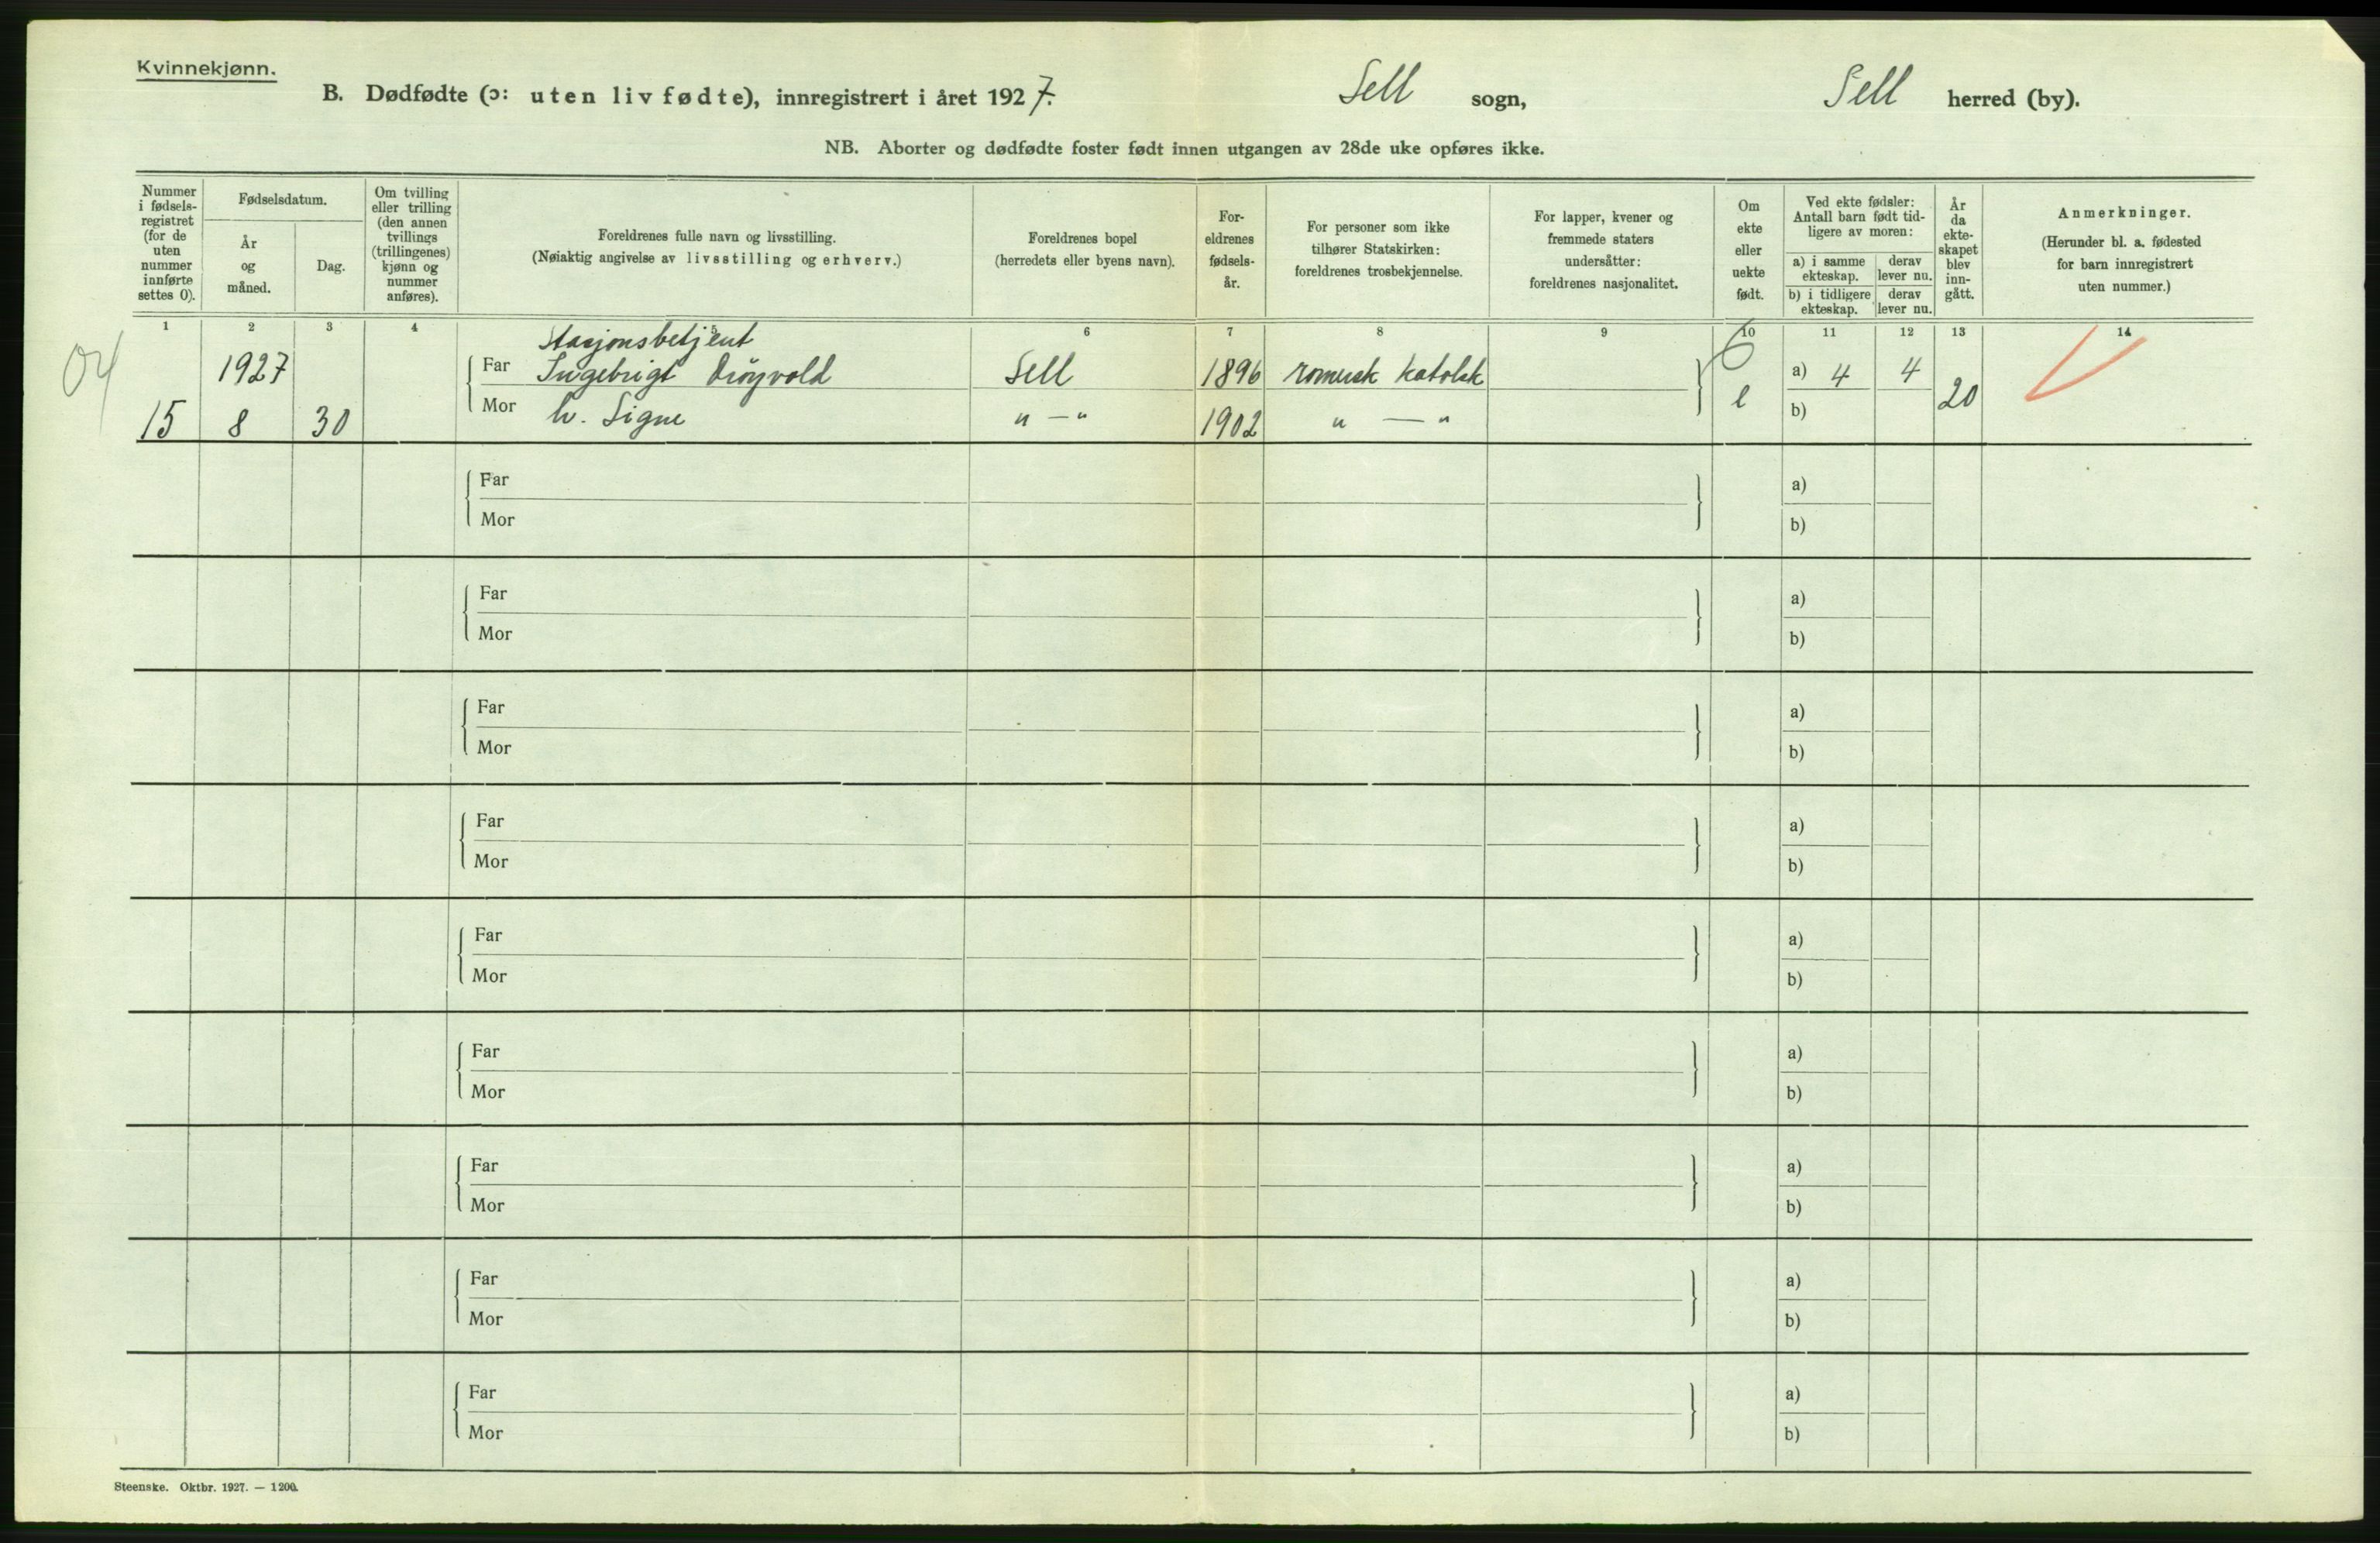 Kvinnekjønn.
B. Dødfødte (ɔ: uten liv fødte), innregistrert i året 1927. Sell sogn, Sell herred (by).
NB. Aborter og dødfødte foster født innen utgangen av 28de uke opføres ikke.
Nummer
i fødsels-
registret
(for de
uten
nummer
innførte
settes 0).
Fødselsdatum.
År
og
måned.
Dag.
Om tvilling
eller trilling
(den annen
tvillings
(trillingenes)
kjønn og
nummer
anføres).
Foreldrenes fulle navn og livsstilling.
(Nøiaktig angivelse av livsstilling og erhverv.)
Foreldrenes bopel
(herredets eller byens navn).
For-
eldrenes
fødsels-
år.
For personer som ikke
tilhører Statskirken:
foreldrenes trosbekjennelse.
For lapper, kvener og
fremmede staters
undersåtter:
foreldrenes nasjonalitet.
Om
ekte
eller
uekte
født.
Ved ekte fødsler:
Antall barn født tid-
ligere av moren:
a) i samme
ekteskap.
derav
lever nu.
b) i tidligere
ekteskap.
derav
lever nu.
År
da
ekte-
skapet
blev
inn-
gått.
Anmerkninger.
(Herunder bl. a. fødested
for barn innregistrert
uten nummer.)
1 2 3 4 5 6 7 8 9 10 11 12 13 14
04
Stasjonsbetjent
6
1927 Far Ingebrigt Sell 1896 romersk katolsk a) 4 4
15 8 30 Mor h. Signe " — " 1902 " — " e b) 20
Far a)
Mor b)
Far a)
Mor b)
Far a)
Mor b)
Far a)
Mor b)
Far a)
Mor b)
Far a)
Mor b)
Far a)
Mor b)
Far a)
Mor b)
Far a)
Mor b)
Steenske. Oktbr. 1927. — 1200.